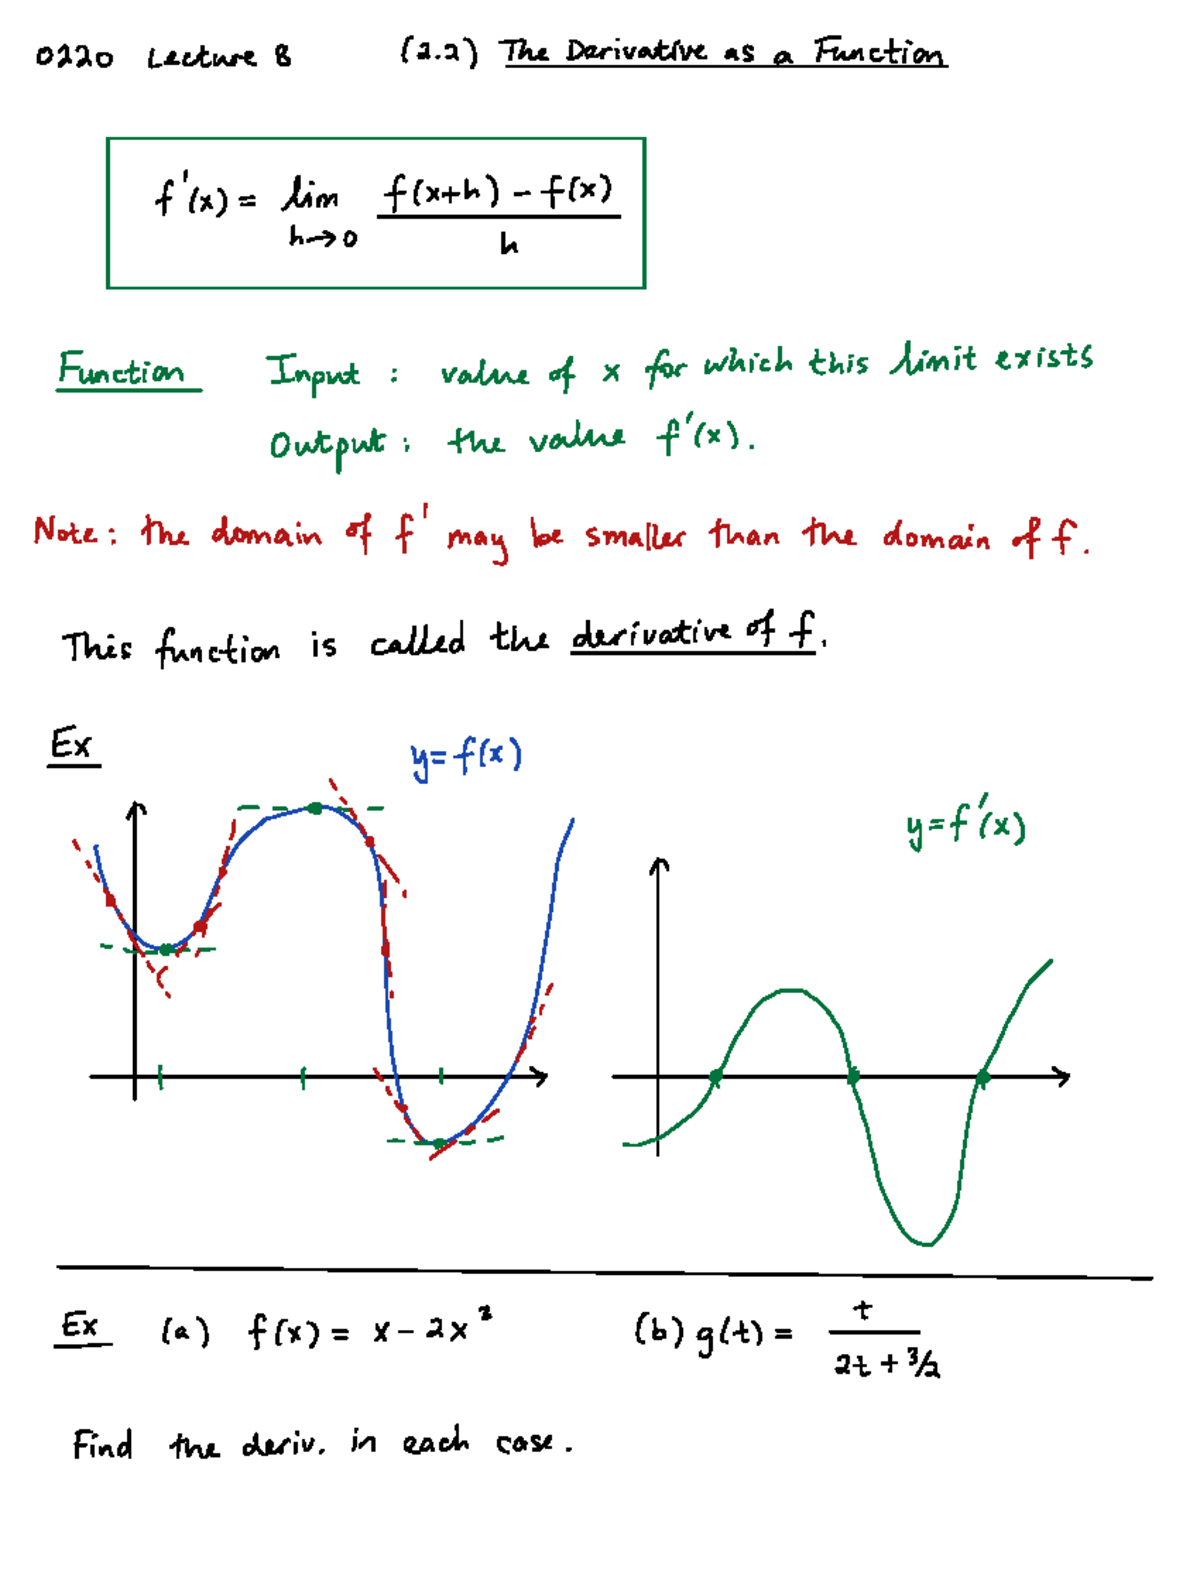 0220 Lecture 8 (2.2) The Derivative as a Function
f'(x) = lim h→0 f(x+h) - f(x) / h
Function Input : value of x for which this limit exists
Output : the value f'(x).
Note : the domain of f' may be smaller than the domain of f.
This function is called the derivative of f.
Ex
y = f(x)
y = f'(x)
Ex (a) f(x) = x - 2x² (b) g(t) = t / 2t + 3/2
Find the deriv. in each case.